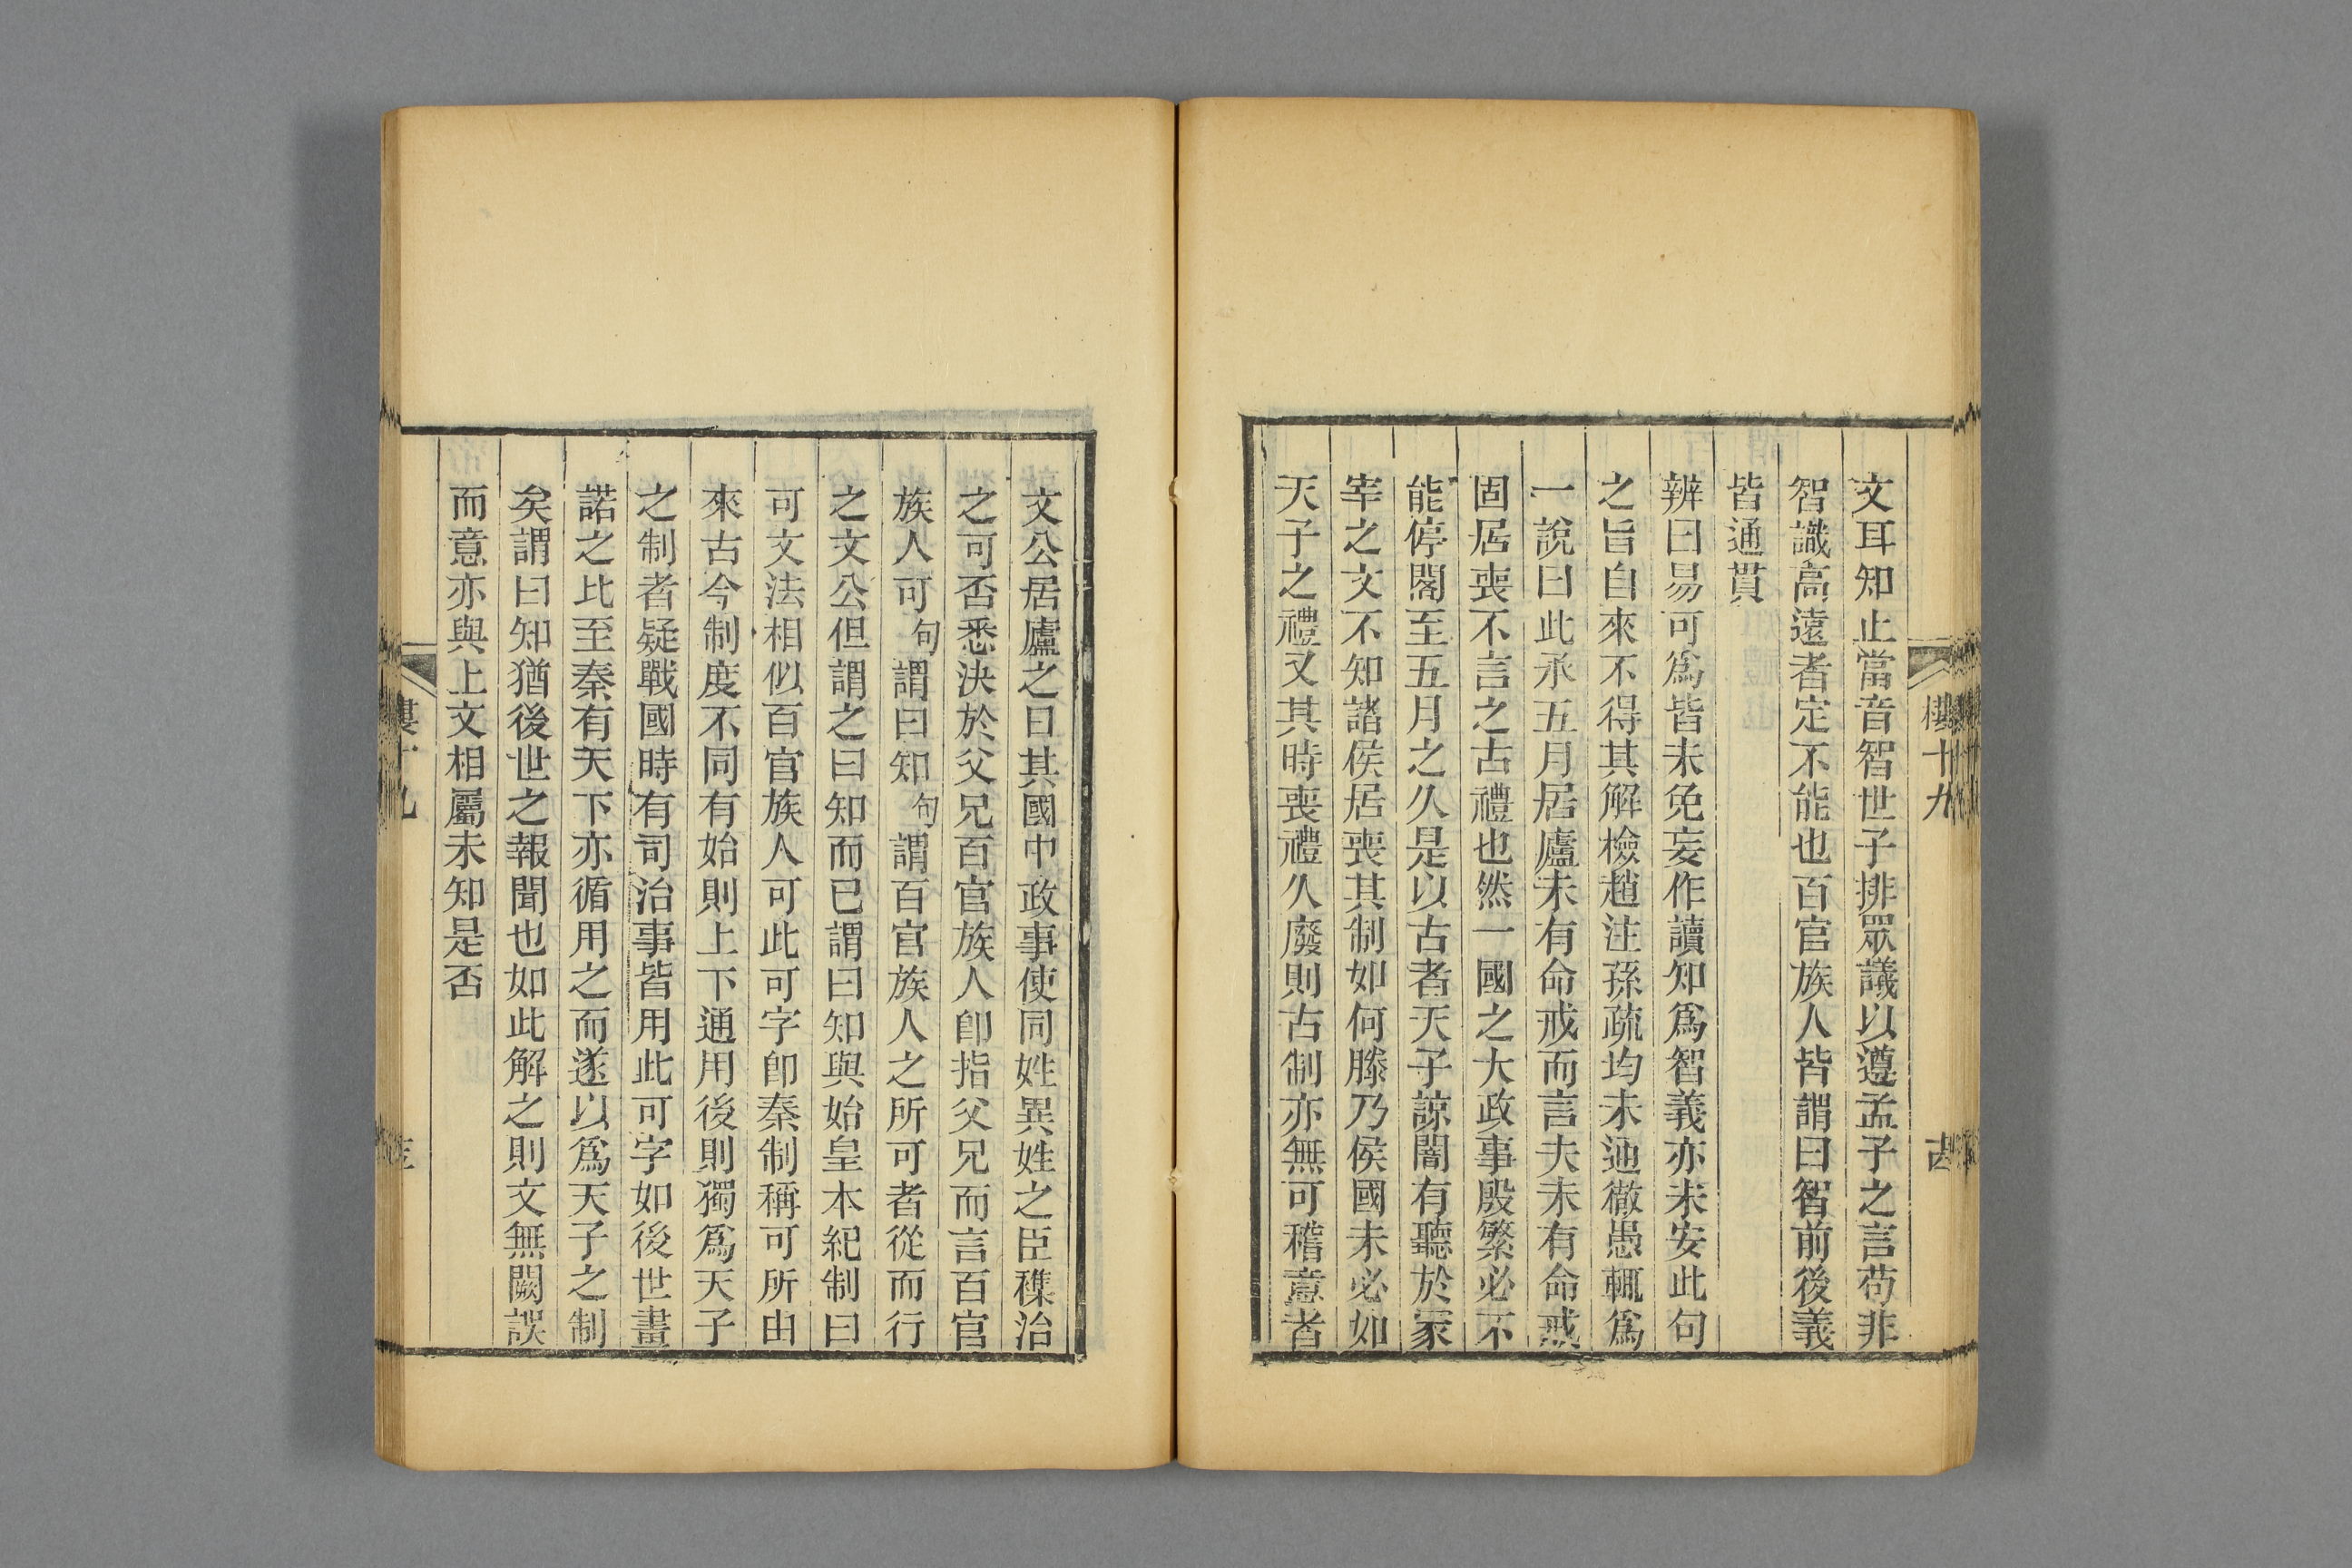 文耳知止當音智世子排眾議以遵孟子之言苟非
智識高遠者定不能也百官族人皆謂曰智前後義
皆通貫
辨曰易可爲皆未免妄作讀知爲智義亦未安此句
之旨自來不得其解檢趙注孫疏均未逈徹愚輒爲
一說曰此承五月居廬未有命戒而言夫未有命戒
固居喪不言之古禮也然一國之大政事殷繁必不
能停閣至五月之久是以古者天子諒闇有聽於冡
宰之文不知諸侯居喪其制如何滕乃侯國未必如
天子之禮又其時喪禮久廢則古制亦無可稽意者
樓十九
文公居廬之日其國中政事使同姓異姓之臣穕治
之可否悉決於父兄百官族人卽指父兄而言百官
族人可句謂曰知句謂百官族人之所可者從而行
之文公但謂之曰知而已謂曰知與始皇本紀制曰
可文法相似百官族人可此可字卽秦制稱可所由
來古今制度不同有始則上下通用後則獨爲天子
之制者疑戰國時有司治事皆用此可字如後世畫
諾之比至秦有天下亦循用之而遂以爲天子之制
矣謂曰知猶後世之報聞也如此解之則文無闕誤
而意亦與上文相屬未知是否